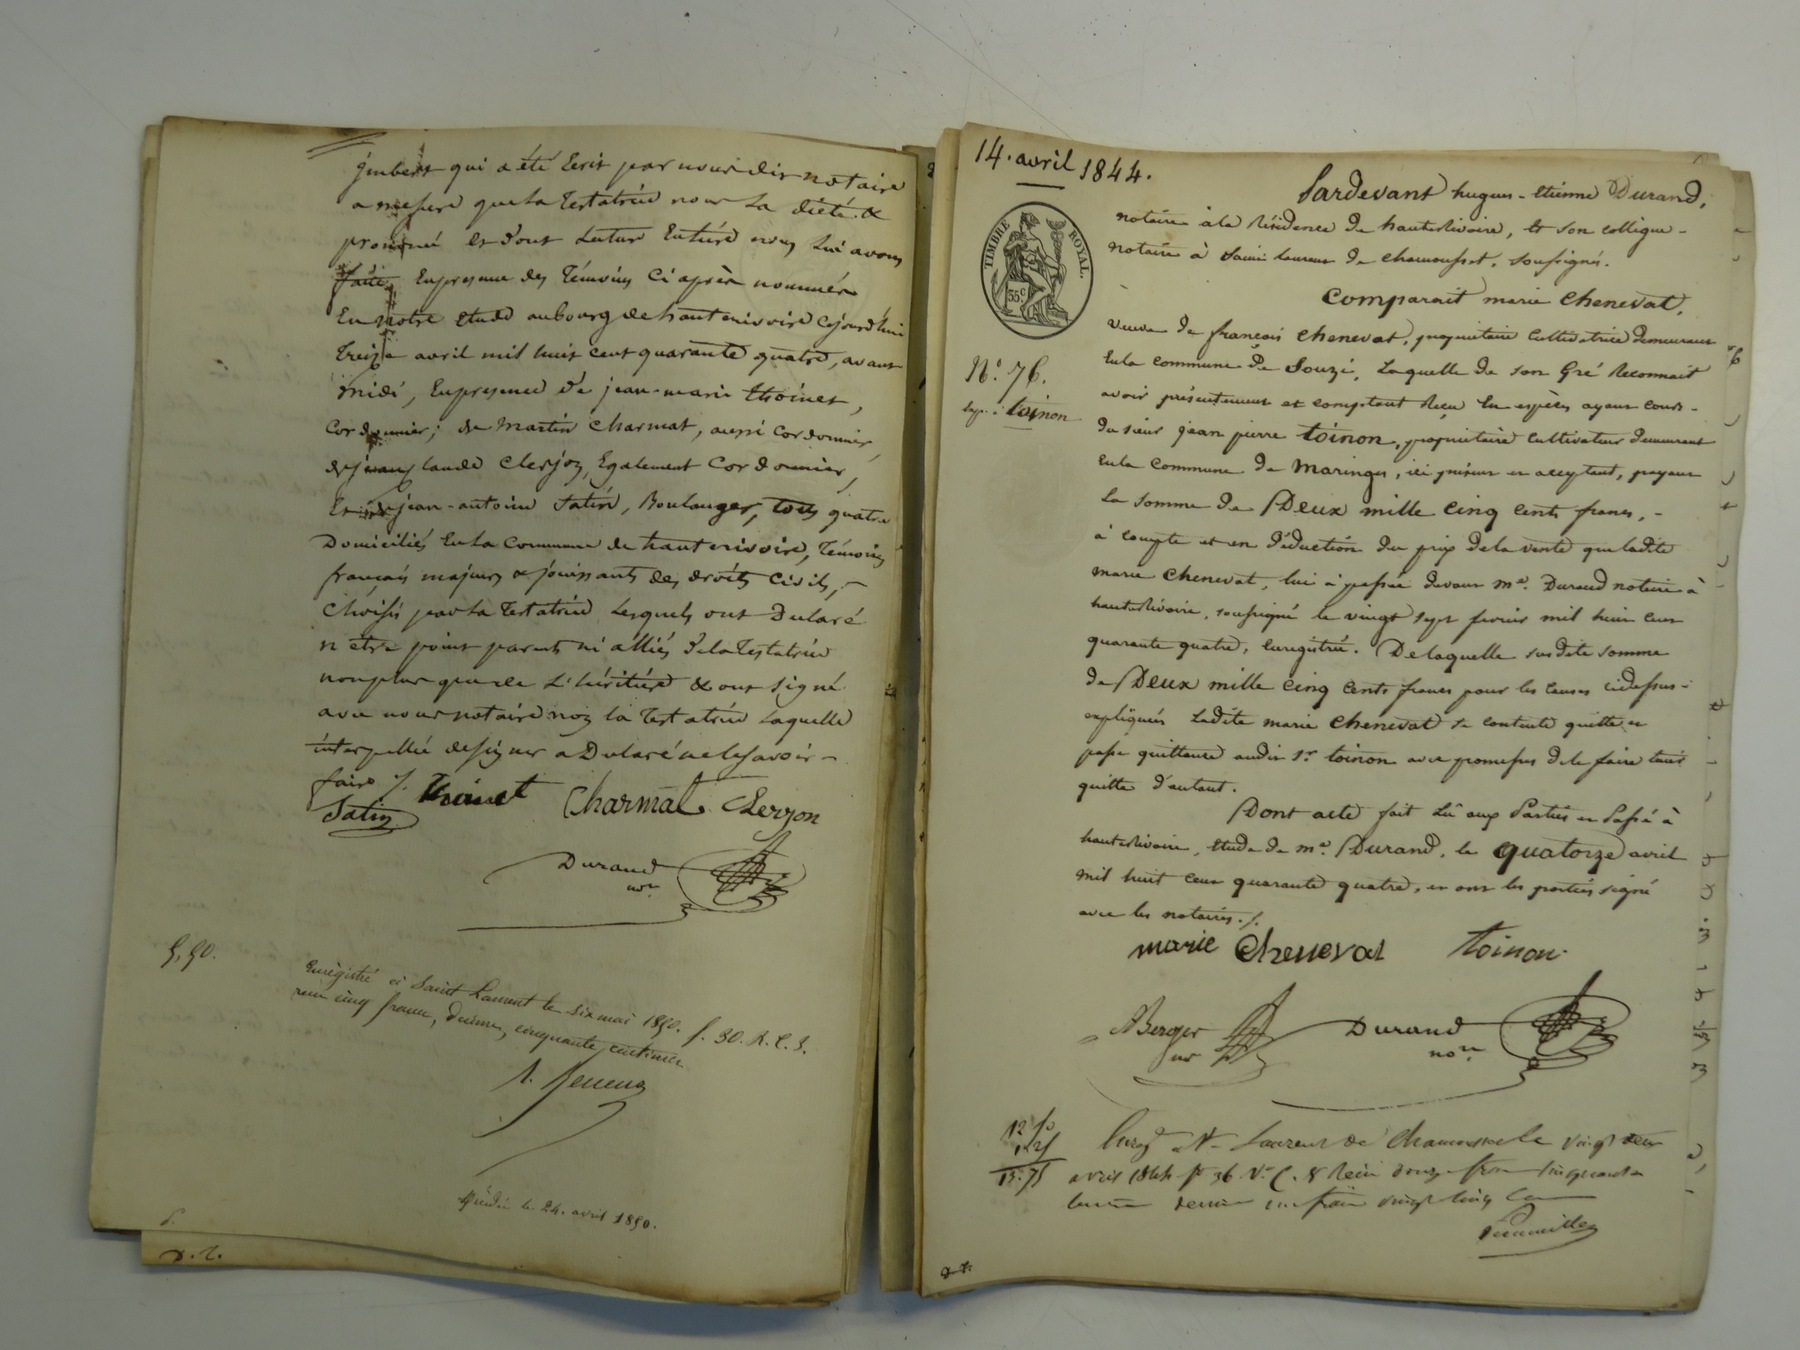 jmbert qui a été Ecrit par nous dit notaire
a mesure que la Testatrice nous la dicté &
prononcé et d'ont Lecture Entière nous lui avons
faite, En presence des Témoins Ci après nommés
En notre étude au bourg de hauterivoire cejourd'hui
treize avril mil huit cent quarante quatre, avant
midi, En presence de jean-marie thoinet,
Cordonnier; de Martin Charmat, aussi Cordonnier,
de jean Claude Clerjon, Egalement Cordonnier,
Et de jean-antoine Satin, Boulanger, tous quatre
Domiciliés En la Commune de hauterivoire, Témoins
français majeurs & jouissants des droits Civils,
Choisis par la Testatrice Lesquels ont Declaré
n'etre point parents ni alliés de la Testatrice
non plus que de L'héritière & ont signé
avec nous notaire non la Testatrice Laquelle
interpellée de signer a Declaré ne le savoir
faire ./.
Satin Thoinet Charmat Clerjon
Durand
nore
5,50.
Enregistré à Saint Laurent le six mai 1850. f. 30. R. C. 3.
reçu cinq francs, décime, cinquante centimes
Décédée le 24. avril 1850.
14. avril 1844.
Pardevant hugues-Etienne Durand,
notaire à la Résidence de hauteRivoire, Et son collègue
notaire à Saint Laurent de chamousset, soussignés.
TIMBRE ROYAL.
35 C
Comparait marie Chenevat,
veuve de françois Chenevat, propriétaire Cultivatrice demeurant
En la commune de Souzi, Laquelle de son Gré Reconnait
N.o 76.
avoir présentement et comptant Reçu En espèces ayant cours
Exp. à toinon
du sieur jean pierre toinon, propriétaire Cultivateur demeurant
En la commune de Maringes, ici présent et acceptant, payant
La somme de Deux mille cinq cents francs,
à compte et en déduction du prix de la vente que ladite
marie Chenevat, lui à passée devant me. Durand notaire à
hauteRivoire, soussigné le vingt sept fevrier mil huit cent
quarante quatre, enregistrée. De laquelle susdite somme
de Deux mille cinq cents francs pour les causes cidessus
expliquées Ladite marie Chenevat se contente quitte et
passe quittance audit sr. toinon avec promesses de le faire tenir
quitte d'autant.
Dont acte fait Lû aux Parties et Passé à
hauteRivoire, étude de me. Durand, le quatorze avril
mil huit cent quarante quatre, et ont les parties signé
avec les notaires ./.
marie Chenevat toinon
ABerger Durand
nre nore
12 50
1,25
13.75
Enregé à St Laurent de Chamousset le vingt deux
avril 1844 fo 36 Vo C. 8 Reçu douze francs cinquante
centimes decime un franc vingt cinq cen